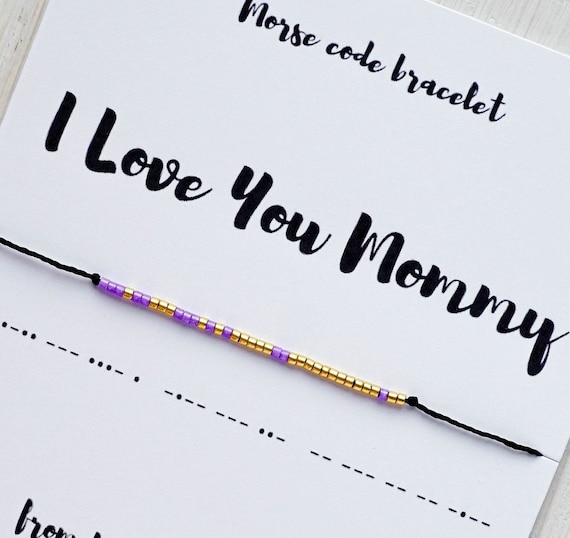 Morse code bracelet
I Love You Mommy
from